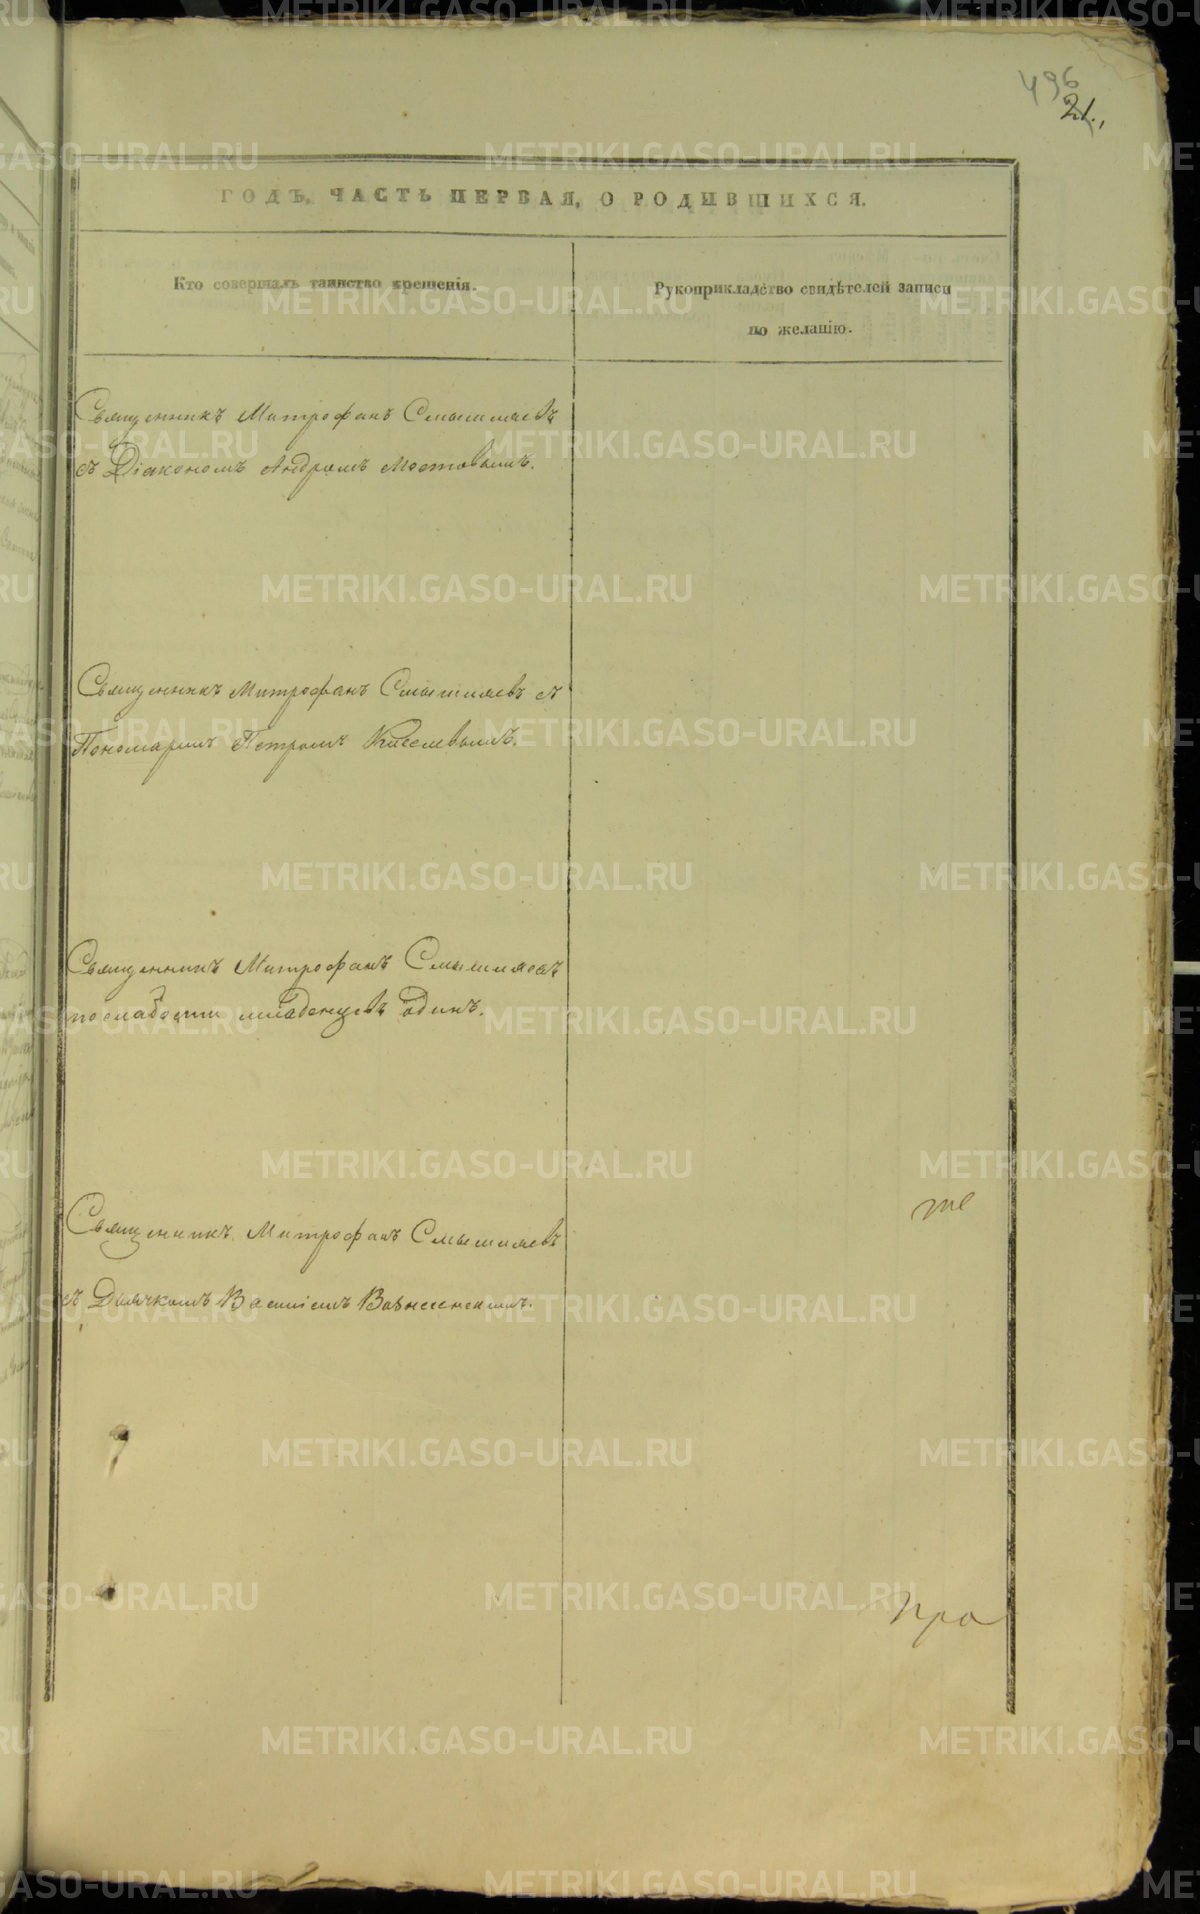 496
21.
ГОДЪ, ЧАСТЬ ПЕРВАЯ, О РОДИВШИХСЯ.
Кто совершалъ таинство крещенія.
Рукоприкладство свидѣтелей записи
по желанію.
Священникъ Митрофанъ Смышляевъ
съ Діакономъ Андреемъ Мостовымъ.
Священникъ Митрофанъ Смышляевъ съ
Пономаремъ Петромъ Киселевымъ.
Священникъ Митрофанъ Смышляевъ
по слабости младенцевъ одинъ.
Священникъ Митрофанъ Смышляевъ
съ Дьячкомъ Василіемъ Вознесенскимъ.
же
пра
METRIKI.GASO-URAL.RU